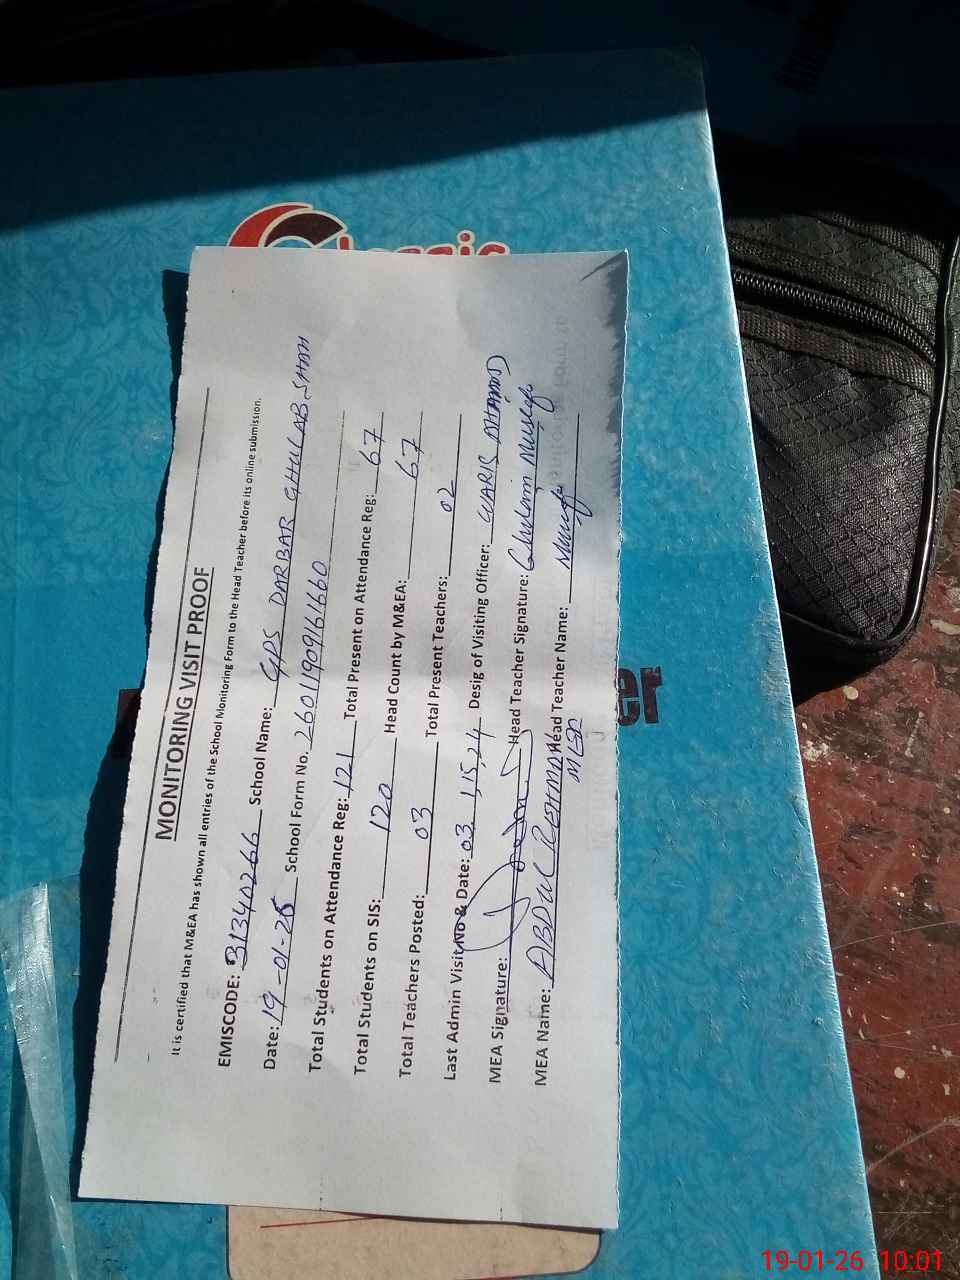 MONITORING VISIT PROOF
It is certified that M&EA has shown all entries of the School Monitoring Form to the Head Teacher before its online submission.
EMISCODE: 31340266 School Name: GPS DARBAR GHULAB SHAH
Date: 19-01-26 School Form No. 26011909161660
Total Students on Attendance Reg: 121 Total Present on Attendance Reg: 67
Total Students on SIS: 120 Head Count by M&EA: 67
Total Teachers Posted: 03 Total Present Teachers: 02
Last Admin Visit No & Date: 03, 1,15,24 Desig of Visiting Officer: WARIS AHAMD
MEA Signature: Head Teacher Signature: Ghulam Mustafa
MEA Name: ABDUL REHMAN Head Teacher Name:
19-01-26 10:01